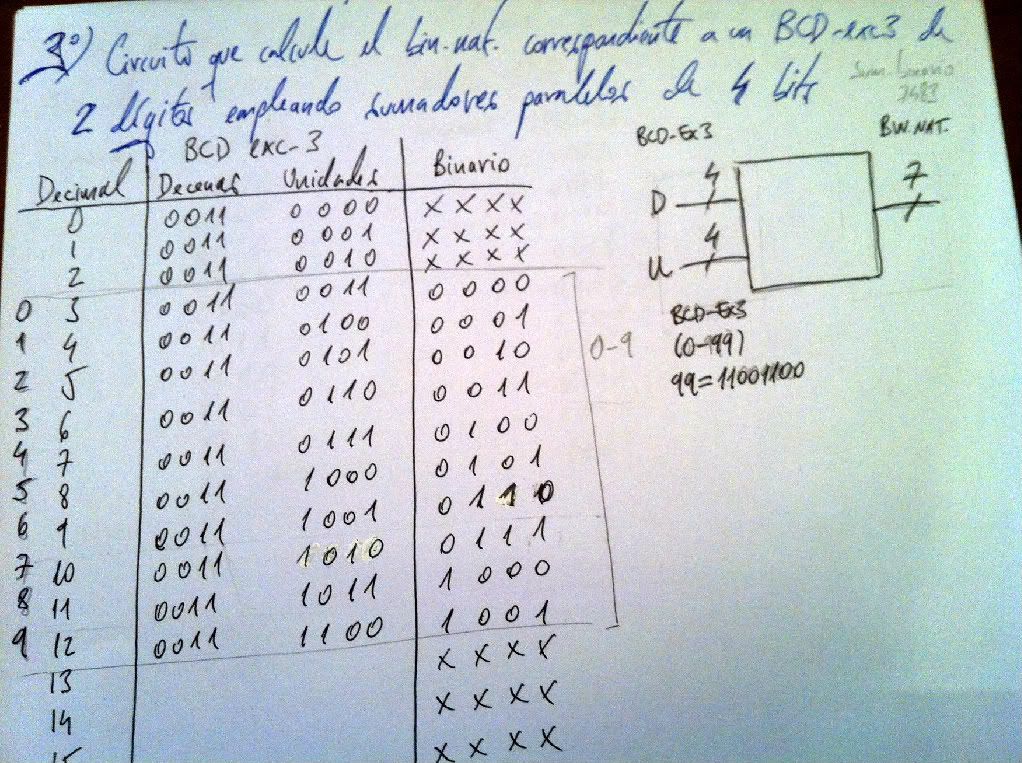 3º) Circuito que calcule el bin.nat. correspondiente a un BCD-exc3 de
2 dígitos empleando sumadores paralelos de 4 bits
Sum. binario
7483
BCD exc-3
Decimal Decenas Unidades Binario
0 0011 0000 XXXX
1 0011 0001 XXXX
2 0011 0010 XXXX
0 3 0011 0011 0000
1 4 0011 0100 0001
2 5 0011 0101 0010
3 6 0011 0110 0011
4 7 0011 0111 0100
5 8 0011 1000 0101
6 9 0011 1001 0110
7 10 0011 1010 0111
8 11 0011 1011 1000
9 12 0011 1100 1001
13 XXXX
14 XXXX
15 XXXX
0-9
BCD-Ex3
BIN.NAT.
4
7
D
4
U
BCD-Ex3
(0-99)
99=11001100